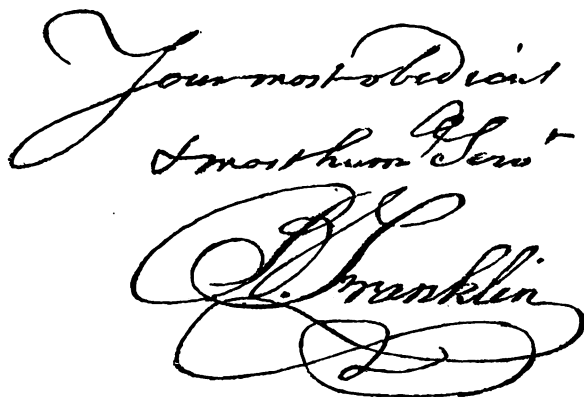 Your most obedient
& most hum^e Serv^t
B. Franklin